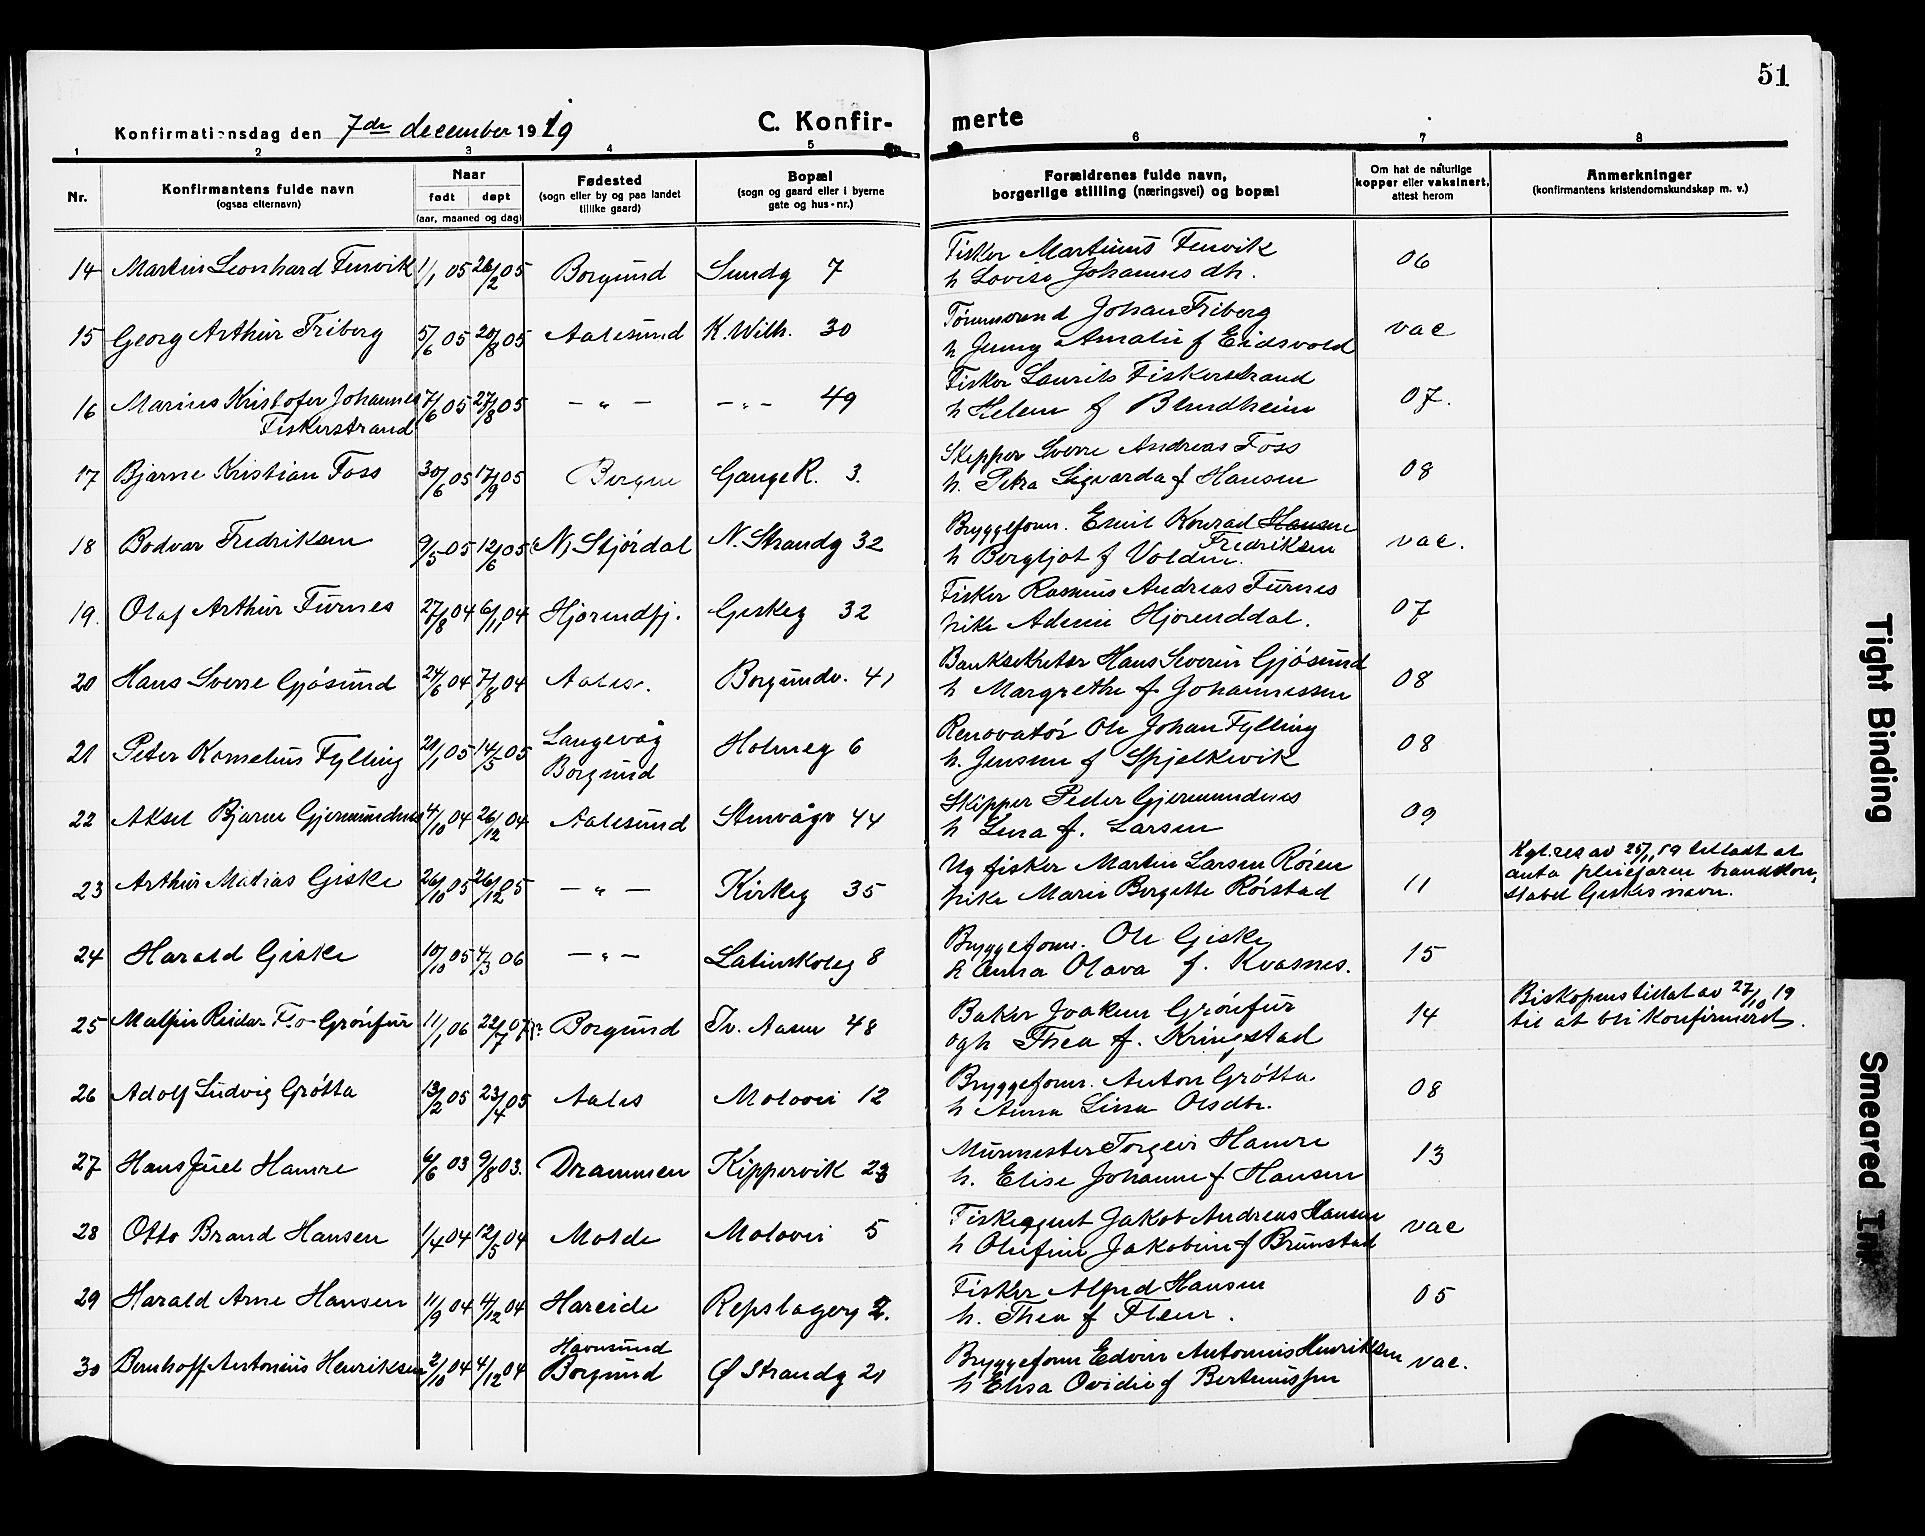 51
Konfirmationsdag den 7de december 1919
C. Konfir-
merte
1 2 3 4 5 6 7 8
Nr.
Konfirmantens fulde navn
(ogsaa efternavn)
Naar
født døpt
(aar, maaned og dag)
Fødested
(sogn eller by og paa landet
tillike gaard)
Bopæl
(sogn og gaard eller i byerne
gate og hus-nr.)
Forældrenes fulde navn,
borgerlige stilling (næringsvei) og bopæl
Om hat de naturlige
kopper eller vaksinert,
attest herom
Anmerkninger
(konfirmantens kristendomskundskap m. v.)
14 Martin Leonhard Furvik 1/1 05 26/2 05 Borgund Sundg 7
Fisker Martinus Furvik
h Lovise Johannes dh.
06
15 Georg Arthur Friberg 5/6 05 20/8 05 Aalesund K. Wilh. 30
Tømmermd Johan Friberg
h Jenny Amalie f Eidsvold
vac
16 Marius Kristofer Johannes
Fiskerstrand
7/6 05 27/8 05 — " — — " — 49
Fisker Laurits Fiskerstrand
h Helene f Blindheim
07.
17 Bjarne Kristian Foss 30/6 05 17/9 05 Bergen Gange R. 3.
Skipper Sverre Andreas Foss
h. Petra Sigvarda f Hansen
08
18 Bodvar Fredriksen 9/5 05 12/6 05 N. Stjørdal N. Strandg 32
Bryggeform. Emil Konrad Hansen
Fredriksen
h Bergljot f Volden.
vac.
19. Olaf Arthur Furnes 27/8 04 6/11 04 Hjørundfj. Giskeg 32
Fisker Rasmus Andreas Furnes
hike Adine Hjorenddal.
07
20 Hans Sverre Gjøsund 24/6 04 7/8 04 Aales. Borgundv. 41
Banksekretær Hans Severin Gjøsund
h Margrethe f Johannessen
08
21 Peter Kornelius Fylling 21/1 05 14/5 05 Langevåg
Borgund
Holmeg 6
Renovatør Ole Johan Fylling
h. Jensine f Spjelkevik
08
22 Aksel Bjarne Gjermundnes 4/10 04 26/12 04 Aalesund Stenvågv 44
Skipper Peder Gjermundnes
h Lina f. Larsen
09
23 Arthur Matias Giske 26/10 05 26/12 05 — " — Kirkeg 35
Ug fisker Martin Larsen Röien
hike Marie Bergitte Röistad
11
Kgl. res av 25/1 19 tilladt at
anta pleiefaren brandkon,
stabel Giskes navn.
24 Harald Giske 10/10 05 4/3 06 — " — Latinskoleg 8
Bryggeform. Ole Giske
h Anna Olava f. Kvasnes.
15
25 Reidar Grönfur 11/1 06 22/7 07 Borgund Iv. Aasen 48
Baker Joakim Grönfur
og h Thea f. Kringstad
14
Biskopens tillat av 27/10 19
til at bli konfirmeret.
26 Adolf Ludvig Gröttá 13/2 05 23/4 05 Aales Molovei 12
Bryggeform. Anton Grötta
h Anna Lina Olsdtr.
08
27 Hans Juel Hamre 6/6 03 9/8 03. Drammen Kippervik 23
Murmester Torgeir Hamre
h. Elise Johanne f Hansen
13
28 Otto Brand Hansen 1/4 04 12/5 04 Molde Molovei 5
Fiskeagent Jakob Andreas Hansen
h Olufine Jakobine f Brunstad
vac
29 Harald Arne Hansen 11/9 04 4/12 04 Hareide Repslagerg 2.
Fisker Alfred Hansen
h. Thea f Fleur.
05
30 Bernhoff Antonius Henriksen 2/10 04 4/12 04 Havnsund
Borgund
Ø Strandg 21
Bryggeform Edvin Antonius Henriksen
h Elisa Ovidie f Bertinussen
vac.
Tight Binding
Smeared Ink